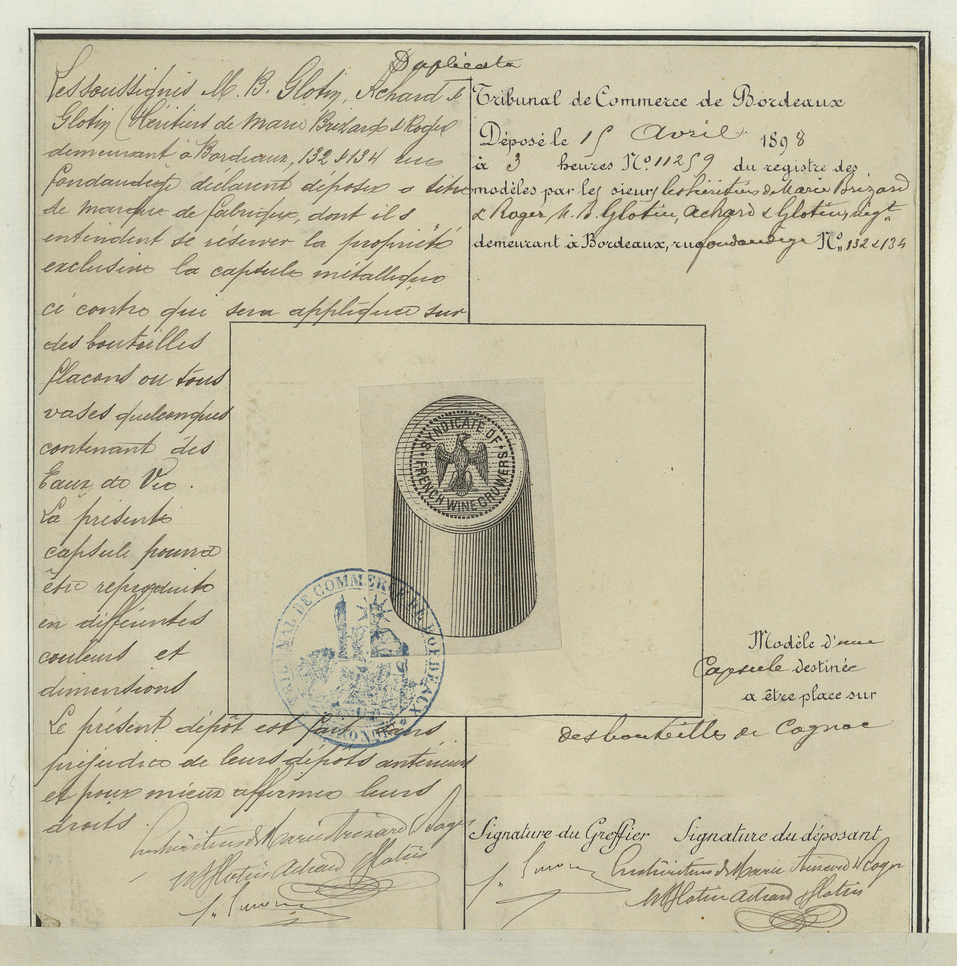 Duplicata
Les soussignés M. B. Glotin, Achard &
Glotin (Héritiers de Marie Brizard & Roger
demeurant à Bordeaux, 132 & 134 rue
fondaudège déclarent déposer a titre
de marque de fabrique, dont ils
entendent se réserver la propriété
exclusive la capsule métallique
ci contre qui sera appliquée sur
des bouteilles
flacons ou tous
vases quelconques
contenant des
Eaux de Vie.
La présente
capsule pourra
être reproduite
en différentes
couleurs et
dimensions
Le présent dépôt est fait sans
préjudice de leurs dépôts antérieurs
et pour mieux affirmer leurs
droits.
Les héritiers de Marie Brizard & Roger
M. B. Glotin Achard & Glotin
Tribunal de Commerce de Bordeaux
Déposé le 15 Avril 1898
à 3 heures No 11259 du registre des
modèles par les sieurs les héritiers de Marie Brizard
& Roger, M. B. Glotin, Achard & Glotin, négts
demeurant à Bordeaux, rue fondaudège No 132 & 134
SYNDICATE OF
FRENCH WINEGROWERS
TRIBUNAL DE COMMERCE DE BORDEAUX
GIRONDE
Modèle d'une
Capsule destinée
a être place sur
des bouteilles de Cognac
Signature du Greffier Signature du déposant
Les héritiers de Marie Brizard & Roger
M. B. Glotin Achard & Glotin